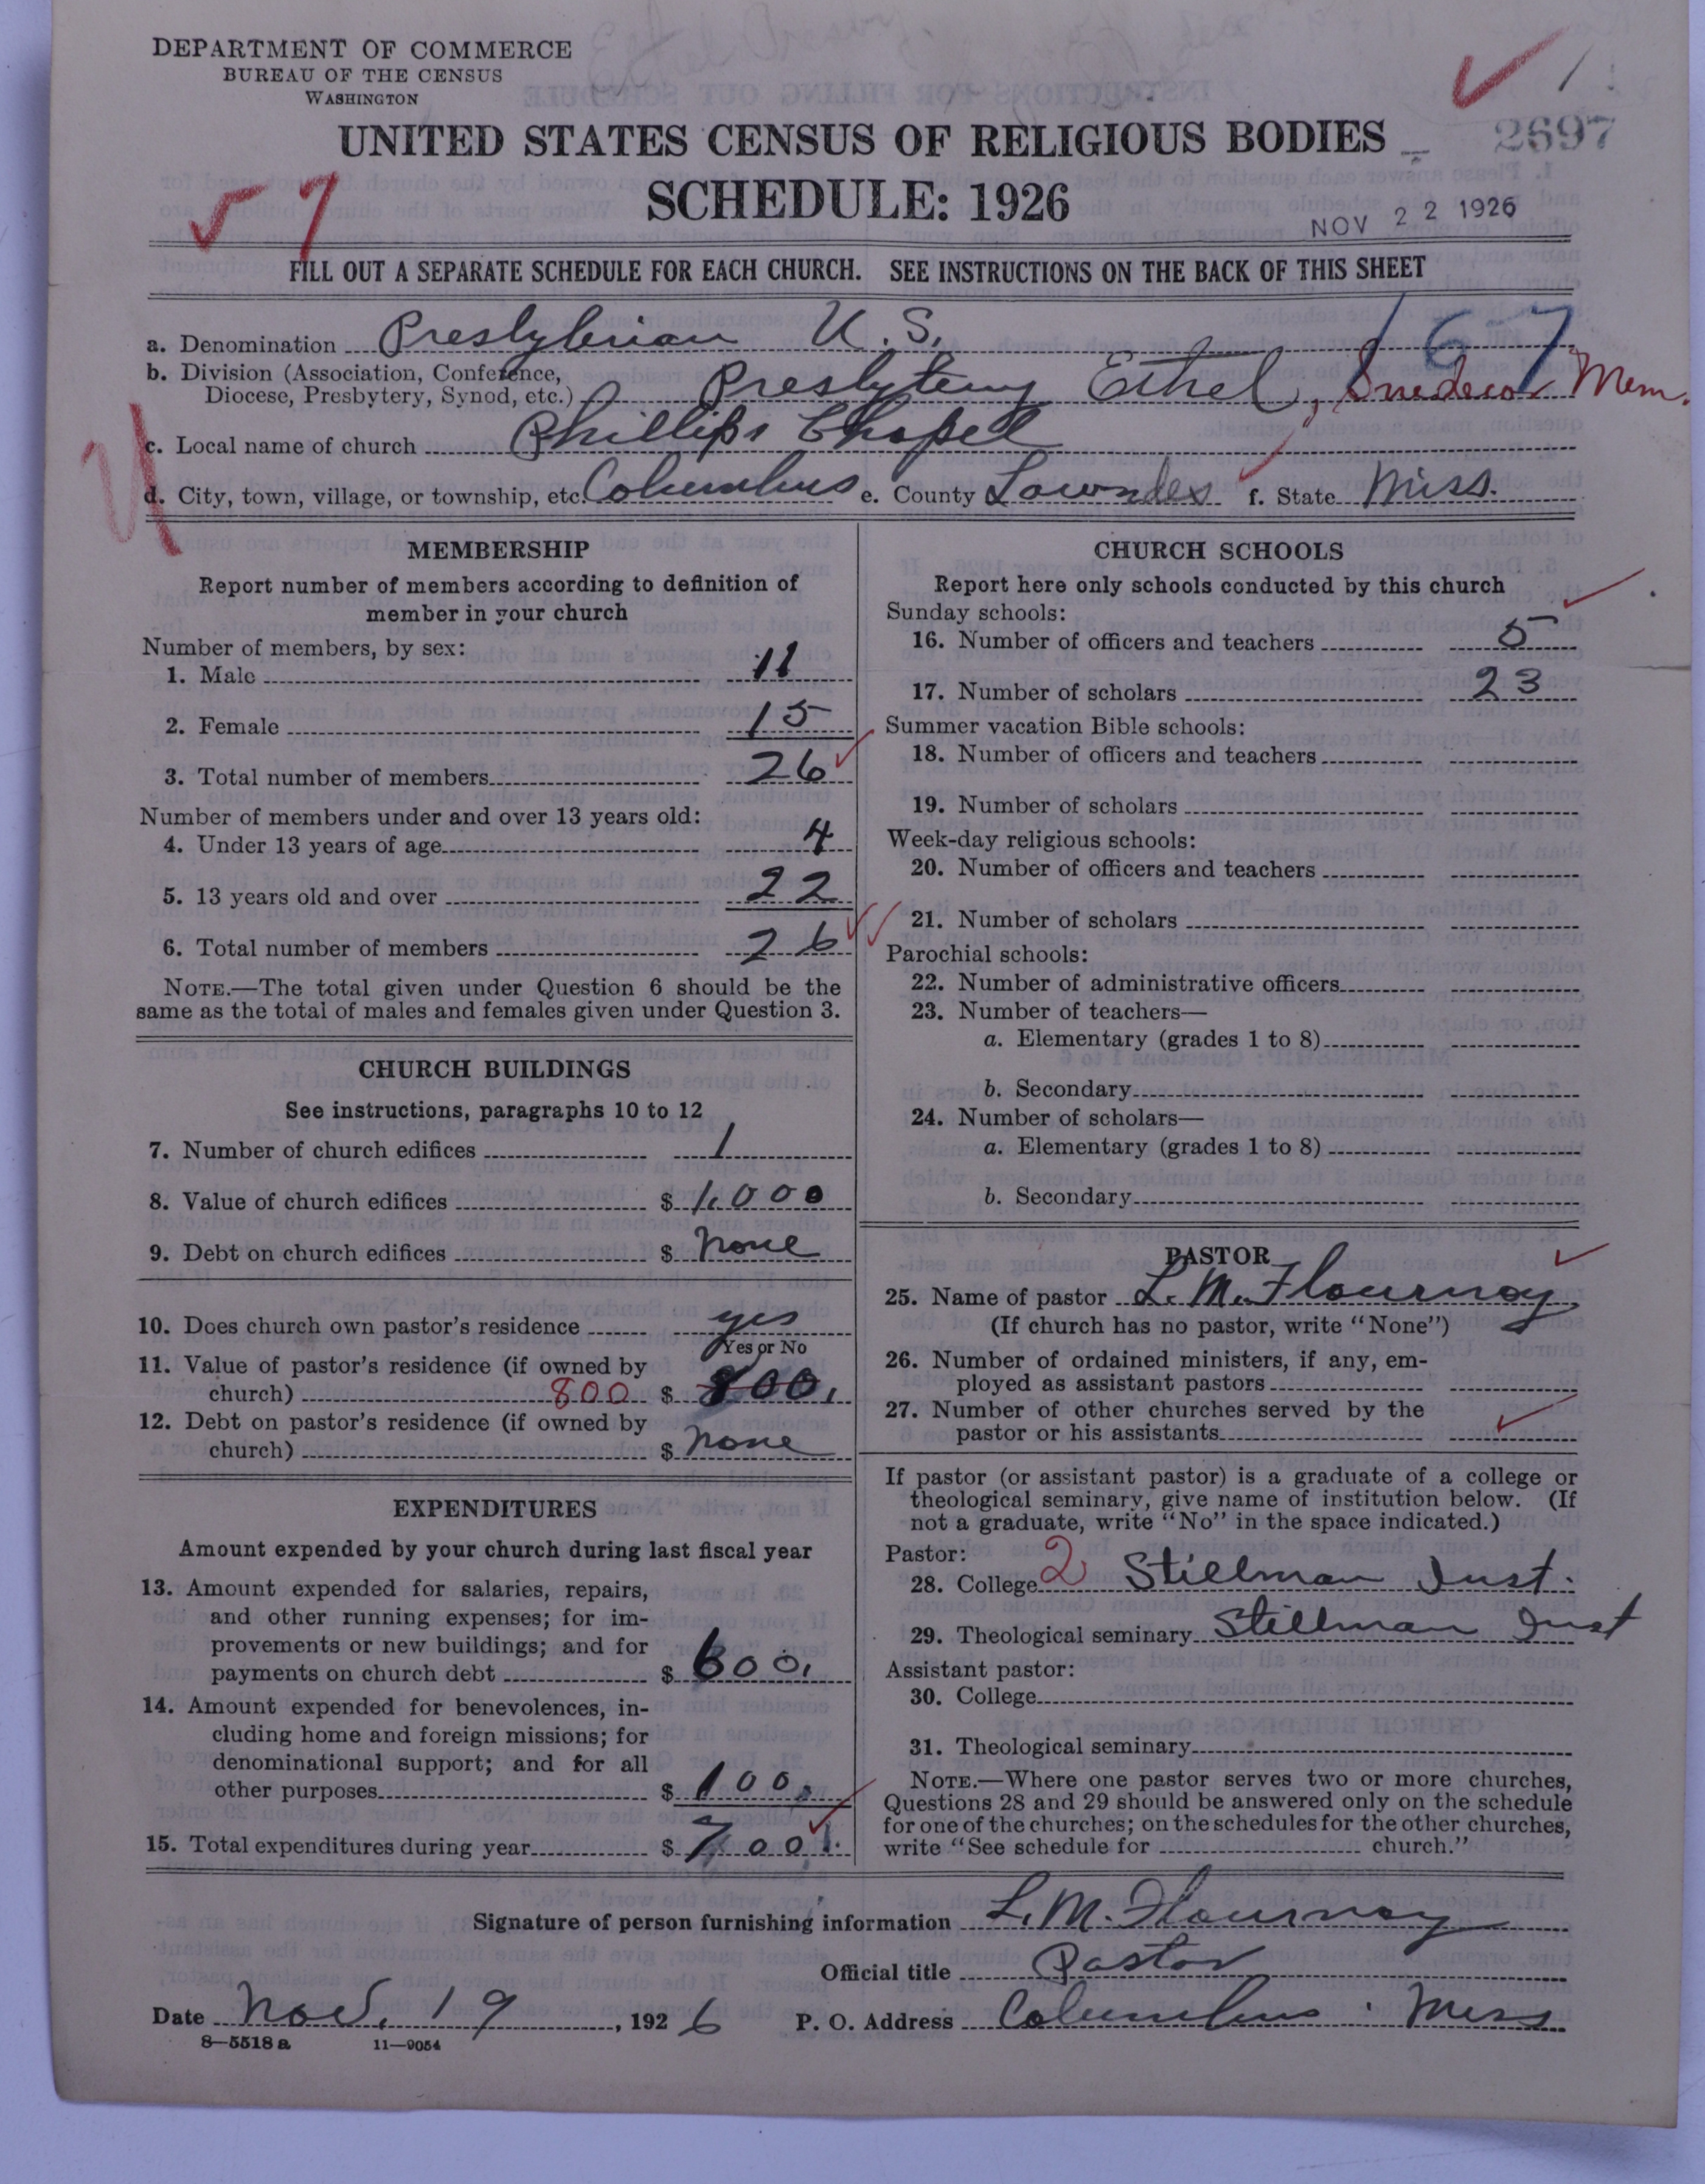 DEPARTMENT OF COMMERCE
BUREAU OF THE CENSUS
WASHINGTON
UNITED STATES CENSUS OF RELIGIOUS BODIES
2697
SCHEDULE: 1926
NOV 22 1926
FILL OUT A SEPARATE SCHEDULE FOR EACH CHURCH. SEE INSTRUCTIONS ON THE BACK OF THIS SHEET
167
a. Denomination Presbyterian U.S.
b. Division (Association, Conference,
Diocese, Presbytery, Synod, etc.) Presbytery Ethel, Snedecor Mem.
c. Local name of church Phillips Chapel
d. City, town, village, or township, etc. Columbus e. County Lowndes f. State Miss.
MEMBERSHIP
Report number of members according to definition of
member in your church
Number of members, by sex:
1. Male 11
2. Female 15
3. Total number of members 26
Number of members under and over 13 years old:
4. Under 13 years of age 4
5. 13 years old and over 22
6. Total number of members 26
NOTE.—The total given under Question 6 should be the
same as the total of males and females given under Question 3.
CHURCH BUILDINGS
See instructions, paragraphs 10 to 12
7. Number of church edifices 1
8. Value of church edifices $ 1,000
9. Debt on church edifices $ none
10. Does church own pastor's residence yes
Yes or No
11. Value of pastor's residence (if owned by
church) 800 $ 800.
12. Debt on pastor's residence (if owned by
church) $ none
EXPENDITURES
Amount expended by your church during last fiscal year
13. Amount expended for salaries, repairs,
and other running expenses; for im-
provements or new buildings; and for
payments on church debt $ 600.
14. Amount expended for benevolences, in-
cluding home and foreign missions; for
denominational support; and for all
other purposes $ 100.
15. Total expenditures during year $ 700.
CHURCH SCHOOLS
Report here only schools conducted by this church
Sunday schools:
16. Number of officers and teachers 5
17. Number of scholars 23
Summer vacation Bible schools:
18. Number of officers and teachers
19. Number of scholars
Week-day religious schools:
20. Number of officers and teachers
21. Number of scholars
Parochial schools:
22. Number of administrative officers
23. Number of teachers—
a. Elementary (grades 1 to 8)
b. Secondary
24. Number of scholars—
a. Elementary (grades 1 to 8)
b. Secondary
PASTOR
25. Name of pastor L. M. Flournoy
(If church has no pastor, write "None")
26. Number of ordained ministers, if any, em-
ployed as assistant pastors
27. Number of other churches served by the
pastor or his assistants
If pastor (or assistant pastor) is a graduate of a college or
theological seminary, give name of institution below. (If
not a graduate, write "No" in the space indicated.)
Pastor:
28. College 2 Stillman Inst.
29. Theological seminary Stillman Inst
Assistant pastor:
30. College
31. Theological seminary
NOTE.—Where one pastor serves two or more churches,
Questions 28 and 29 should be answered only on the schedule
for one of the churches; on the schedules for the other churches,
write "See schedule for church."
Signature of person furnishing information L. M. Flournoy
Official title Pastor
Date Nov. 19, 1926 P. O. Address Columbus. Miss
8—5518 a 11—9054